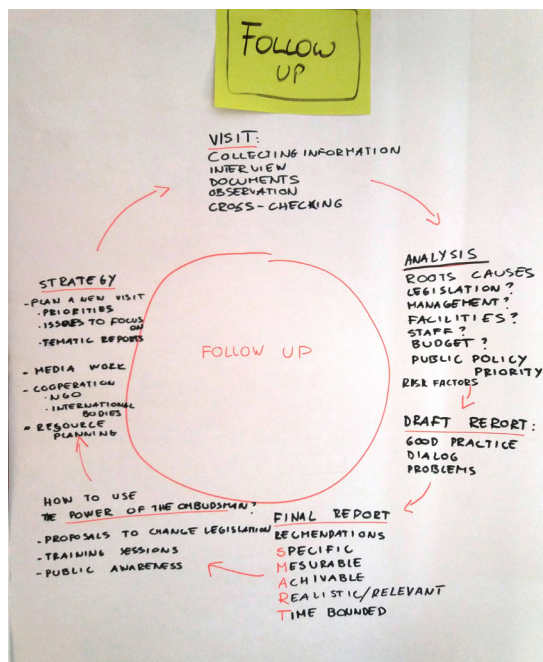 FOLLOW
UP
VISIT:
COLLECTING INFORMATION
INTERVIEW
DOCUMENTS
OBSERVATION
CROSS-CHECKING
ANALYSIS
ROOTS CAUSES
LEGISLATION?
MANAGEMENT?
FACILITIES?
STAFF?
BUDGET?
PUBLIC POLICY
PRIORITY
RISK FACTORS
DRAFT REPORT:
GOOD PRACTICE
DIALOG
PROBLEMS
FINAL REPORT
RECMENDATIONS
SPECIFIC
MESURABLE
ACHIVABLE
REALISTIC/RELEVANT
TIME BOUNDED
HOW TO USE
THE POWER OF THE OMBUDSMAN?
- PROPOSALS TO CHANGE LEGISLATION
- TRAINING SESSIONS
- PUBLIC AWARENESS
STRATEGY
- PLAN A NEW VISIT
· PRIORITIES
· ISSUES TO FOCUS
ON
· TEMATIC REPORTS
- MEDIA WORK
- COOPERATION
· NGO
· INTERNATIONAL
BODIES
- RESOURCE
PLANNING
FOLLOW UP